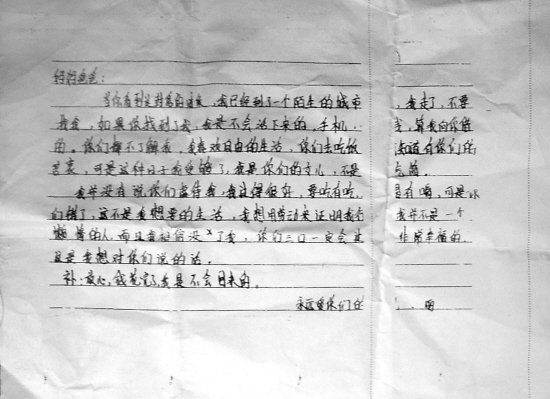 妈妈爸爸:
当你看到这封信的时候,我已经到了一个陌生的城市,我走了,不要
找我,如果你找到了我,我是不会活下来的,手机
的。你们都不了解我,我喜欢自由的生活,你们
,可是这样日子我受够了,我是你们的女儿,不是
我并没有说你们虐待我,我过得很好,要吃有吃,有喝,可是
们错了,这不是我想要的生活,我想用劳动来证明我 我并不是一个
懒惰的人,而且我相信没了我,你们三口一定会 非常幸福的.
这是我想对你们说的话。
补:放心,钱花完了,我是不会回来的。
永远爱你们的